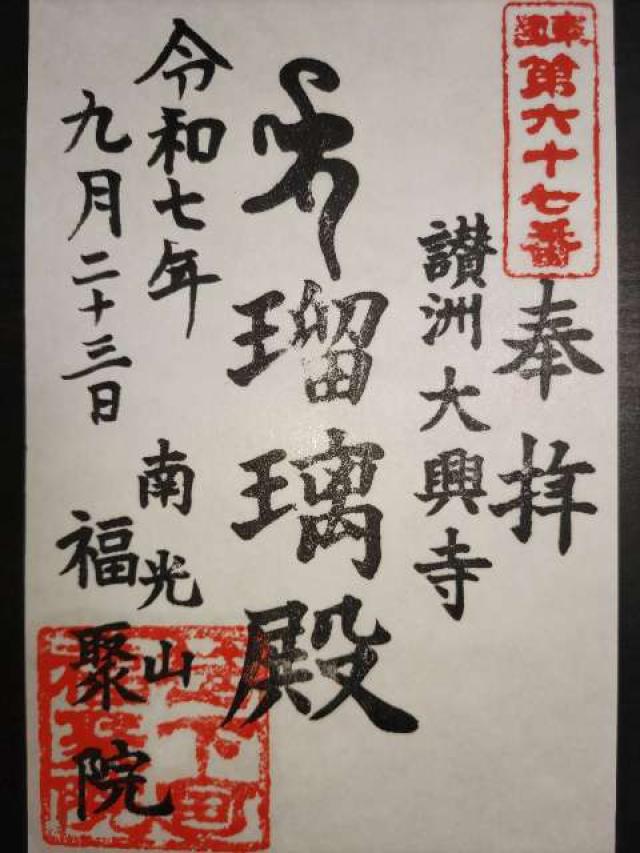 第六十七番
奉拝
讃洲大興寺
瑠璃殿
令和七年
九月二十三日
南光山
福聚院